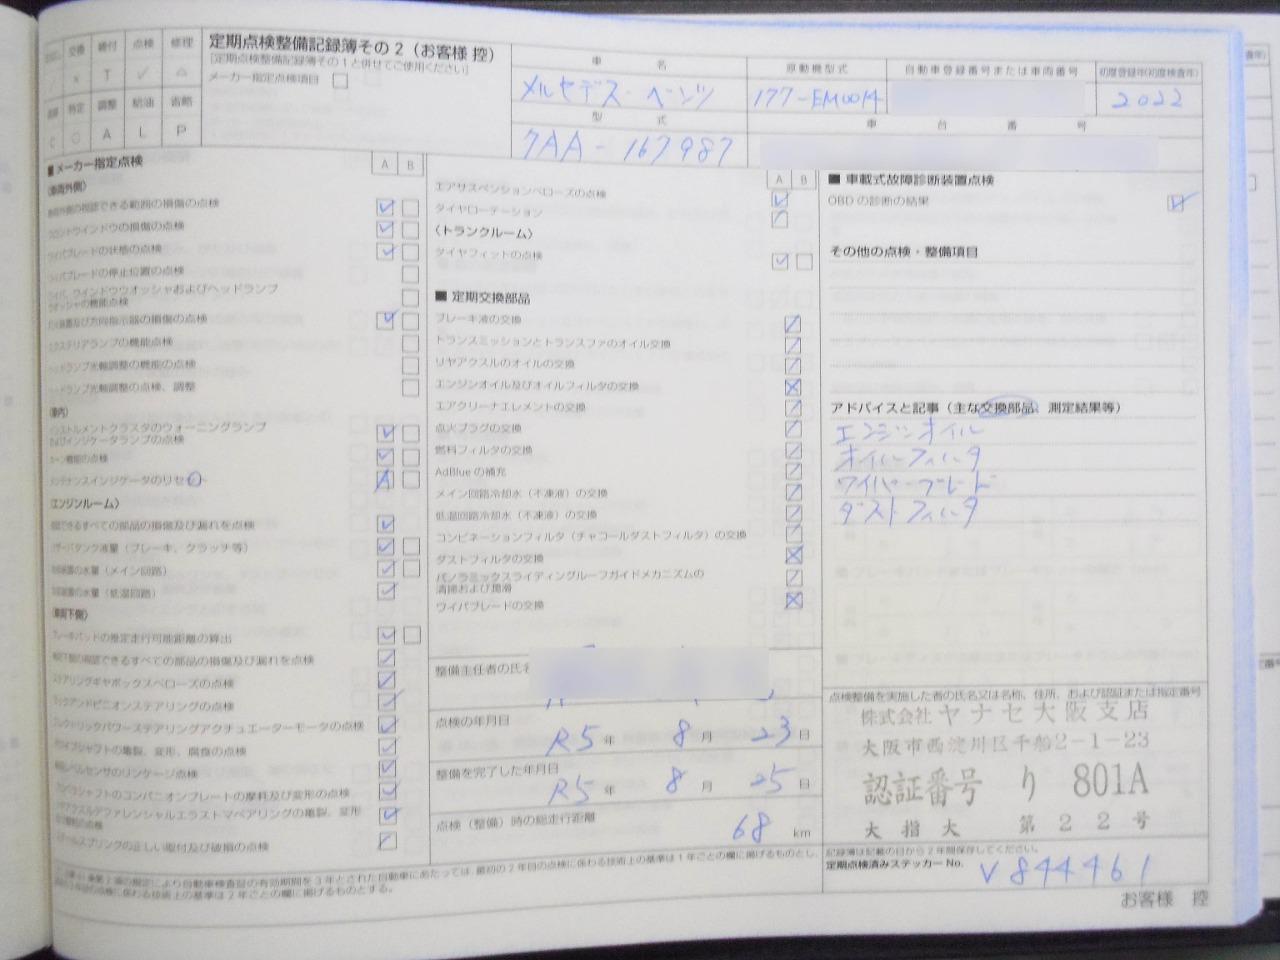 交換 締付 点検 修理
× T ✓ △
特定 調整 給油 省略
○ A L P
定期点検整備記録簿その2（お客様 控）
[定期点検整備記録簿その1と併せてご使用ください]
メーカー指定点検項目 □
車 名
メルセデス・ベンツ
型 式
7AA-167987
原動機型式
177-EM0014
自動車登録番号または車両番号
初度登録年(初度検査年)
2022
車 台 番 号
■メーカー指定点検
A B
(車両外側)
の視認できる範囲の損傷の点検
フロントウインドウの損傷の点検
ワイパブレードの状態の点検
ワイパブレードの停止位置の点検
ワイパ、ウインドウウオッシャおよびヘッドランプ
ウオッシャの機能点検
装置及び方向指示器の損傷の点検
エクステリアランプの機能点検
ヘッドランプ光軸調整の機能の点検
ヘッドランプ光軸調整の点検、調整
(車内)
インストルメントクラスタのウォーニングランプ
及びインジケータランプの点検
ホーン機能の点検
メンテナンスインジケータのリセット
(エンジンルーム)
視認できるすべての部品の損傷及び漏れを点検
リザーバタンク液量（ブレーキ、クラッチ等）
の水量（メイン回路）
の水量（低温回路）
(車両下側)
ブレーキパッドの推定走行可能距離の算出
視認できるすべての部品の損傷及び漏れを点検
ステアリングギヤボックスベローズの点検
ラックアンドピニオンステアリングの点検
エレクトリックパワーステアリングアクチュエーターモータの点検
ドライブシャフトの亀裂、変形、腐食の点検
レベルセンサのリンケージ点検
プロペラシャフトのコンパニオンプレートの摩耗及び変形の点検
リヤアクスルデファレンシャルエラストマベアリングの亀裂、変形
の点検
コイルスプリングの正しい取付及び破損の点検
A B
エアサスペンションベローズの点検
タイヤローテーション
(トランクルーム)
タイヤフィットの点検
■ 定期交換部品
ブレーキ液の交換
トランスミッションとトランスファのオイル交換
リヤアクスルのオイルの交換
エンジンオイル及びオイルフィルタの交換
エアクリーナエレメントの交換
点火プラグの交換
燃料フィルタの交換
AdBlue の補充
メイン回路冷却水（不凍液）の交換
低温回路冷却水（不凍液）の交換
コンビネーションフィルタ（チャコールダストフィルタ）の交換
ダストフィルタの交換
パノラミックスライディングルーフガイドメカニズムの
清掃および潤滑
ワイパブレードの交換
整備主任者の氏名
点検の年月日
R5 年 8 月 23 日
整備を完了した年月日
R5 年 8 月 25 日
点検（整備）時の総走行距離
68 km
■ 車載式故障診断装置点検
OBD の診断の結果
その他の点検・整備項目
アドバイスと記事（主な交換部品、測定結果等）
エンジンオイル
オイルフィルタ
ワイパーブレード
ダストフィルタ
点検整備を実施した者の氏名又は名称、住所、および認証または指定番号
株式会社ヤナセ大阪支店
大阪市西淀川区千船2-1-23
認証番号 り 801A
大 指 大 第 2 2 号
記録簿は記載の日から2年間保存してください。
定期点検済みステッカー No.
V 844461
の規定により自動車検査証の有効期間を3年とされた自動車にあたっては、最初の2年目の点検に係わる技術上の基準は1年ごとの欄に掲げるものとし、
の点検に係わる技術上の基準は2年ごとの欄に掲げるものとする。
お客様 控